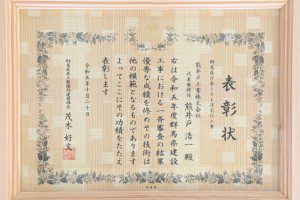 表彰状
熊井戸工業株式会社
代表取締役 熊井戸 浩一 殿
右は令和五年度群馬県建設
工事における一斉審査の結果
優秀な成績を修めその技術は
他の模範となるものであります
よってここにその功績をたたえ
表彰します
令和五年十月二十日
茂木 好文